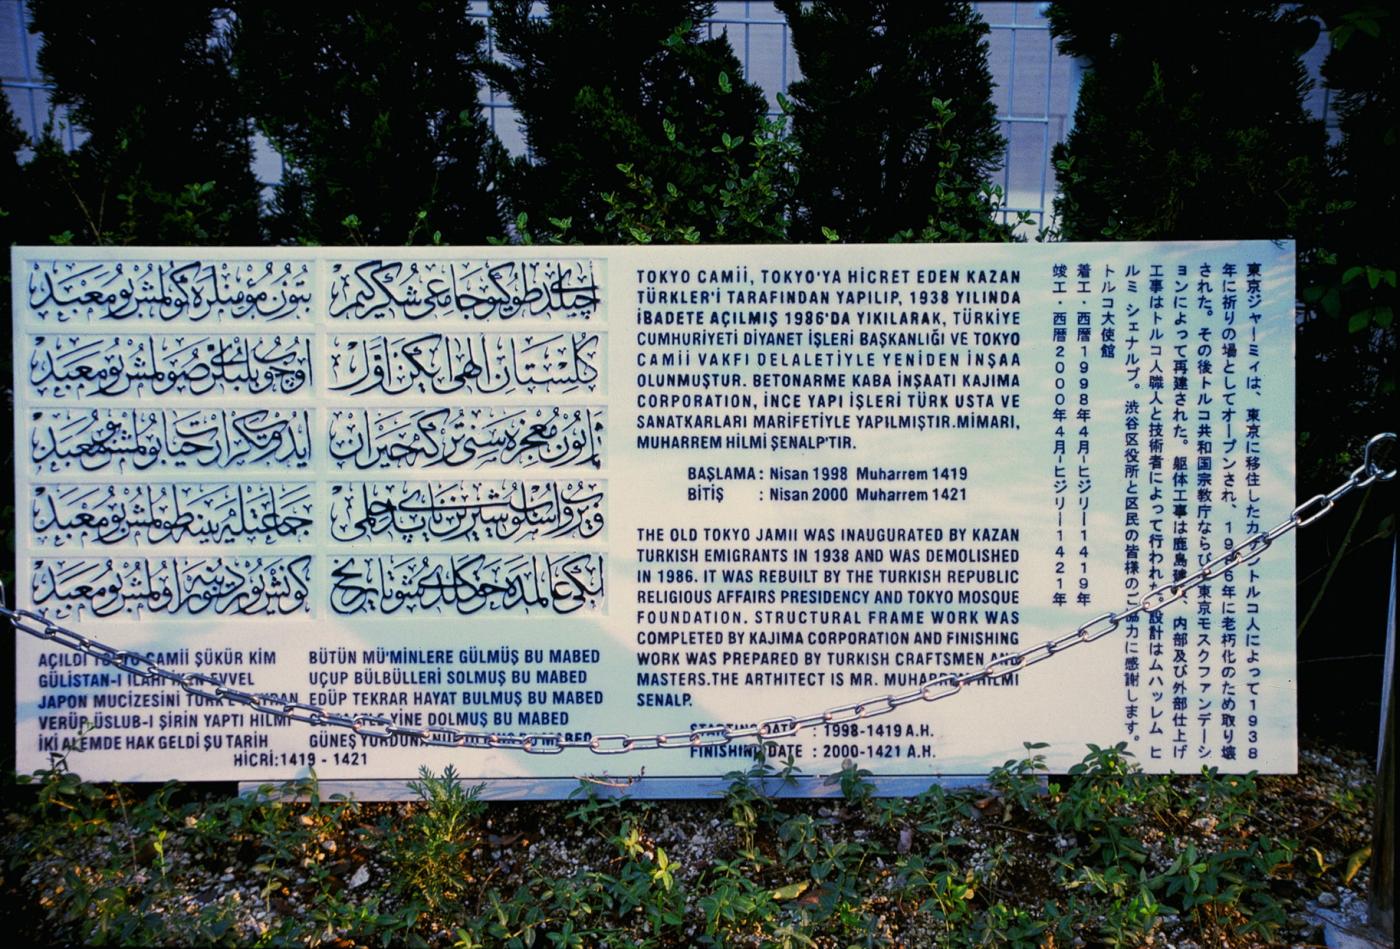 آچیلدی طوکیو جامعی شکر کیم
بتون مؤمنلره کولمش بو معبد
کلستان الهی ایکن اول
اوچوب بلبللری صولمش بو معبد
ژاپون معجزه سنی ترک حیران
ایدوب تکرار حیات بولمش بو معبد
ویروب اسلوب شیرین یاپدی حلمی
جماعتله ینه طولمش بو معبد
ایکی عالمده حق کلدی شو تاریخ
کونش یوردینه نور اولمش بو معبد
AÇILDI CAMİİ ŞÜKÜR KİM
GÜLİSTAN-I İLAHİ EVVEL
JAPON MUCİZESİNİ
VERÜP ÜSLUB-I ŞİRİN YAPTI HİLMİ
İKİ ALEMDE HAK GELDİ ŞU TARİH
BÜTÜN MÜ'MİNLERE GÜLMÜŞ BU MABED
UÇUP BÜLBÜLLERİ SOLMUŞ BU MABED
EDÜP TEKRAR HAYAT BULMUŞ BU MABED
YİNE DOLMUŞ BU MABED
GÜNEŞ BU MABED
HİCRİ:1419 - 1421
TOKYO CAMİİ, TOKYO'YA HİCRET EDEN KAZAN
TÜRKLER'İ TARAFINDAN YAPILIP, 1938 YILINDA
İBADETE AÇILMIŞ 1986'DA YIKILARAK, TÜRKİYE
CUMHURİYETİ DİYANET İŞLERİ BAŞKANLIĞI VE TOKYO
CAMİİ VAKFI DELALETİYLE YENİDEN İNŞAA
OLUNMUŞTUR. BETONARME KABA İNŞAATI KAJIMA
CORPORATION, İNCE YAPI İŞLERİ TÜRK USTA VE
SANATKARLARI MARİFETİYLE YAPILMIŞTIR.MİMARI,
MUHARREM HİLMİ ŞENALP'TIR.
BAŞLAMA : Nisan 1998 Muharrem 1419
BİTİŞ : Nisan 2000 Muharrem 1421
THE OLD TOKYO JAMII WAS INAUGURATED BY KAZAN
TURKISH EMIGRANTS IN 1938 AND WAS DEMOLISHED
IN 1986. IT WAS REBUILT BY THE TURKISH REPUBLIC
RELIGIOUS AFFAIRS PRESIDENCY AND TOKYO MOSQUE
FOUNDATION. STRUCTURAL FRAME WORK WAS
COMPLETED BY KAJIMA CORPORATION AND FINISHING
WORK WAS PREPARED BY TURKISH CRAFTSMEN AND
MASTERS.THE ARTHITECT IS MR. MUHARREM HILMI
SENALP.
STARTING DATE : 1998-1419 A.H.
FINISHING DATE : 2000-1421 A.H.
東京ジャーミィは、東京に移住したカザントルコ人によって1938
年に祈りの場としてオープンされ、1986年に老朽化のため取り壊
された。その後トルコ共和国宗教庁ならびに東京モスクファンデーシ
ョンによって再建された。躯体工事は鹿島建設、内部及び外部仕上げ
工事はトルコ人職人と技術者によって行われた。設計はムハッレム ヒ
ルミ シェナルプ。渋谷区役所と区民の皆様のご協力に感謝します。
トルコ大使館
着工・西暦1998年4月-ヒジリー1419年
竣工・西暦2000年4月-ヒジリー1421年